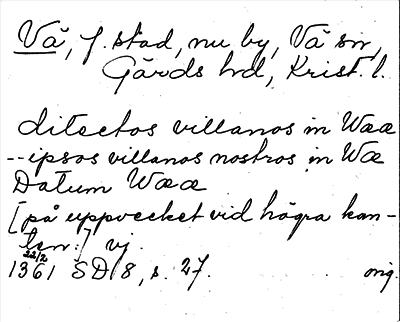 Vä, f. stad, nu by, Vä sn,
Gärds hd, Krist. l.
dilectos villanos in Wææ
--ipsos villanos nostros in Wæ
Datum Wææ
[på uppvecket vid högra kan-
ten:] vj.
22/2
1361 SD 8, s. 27. orig.